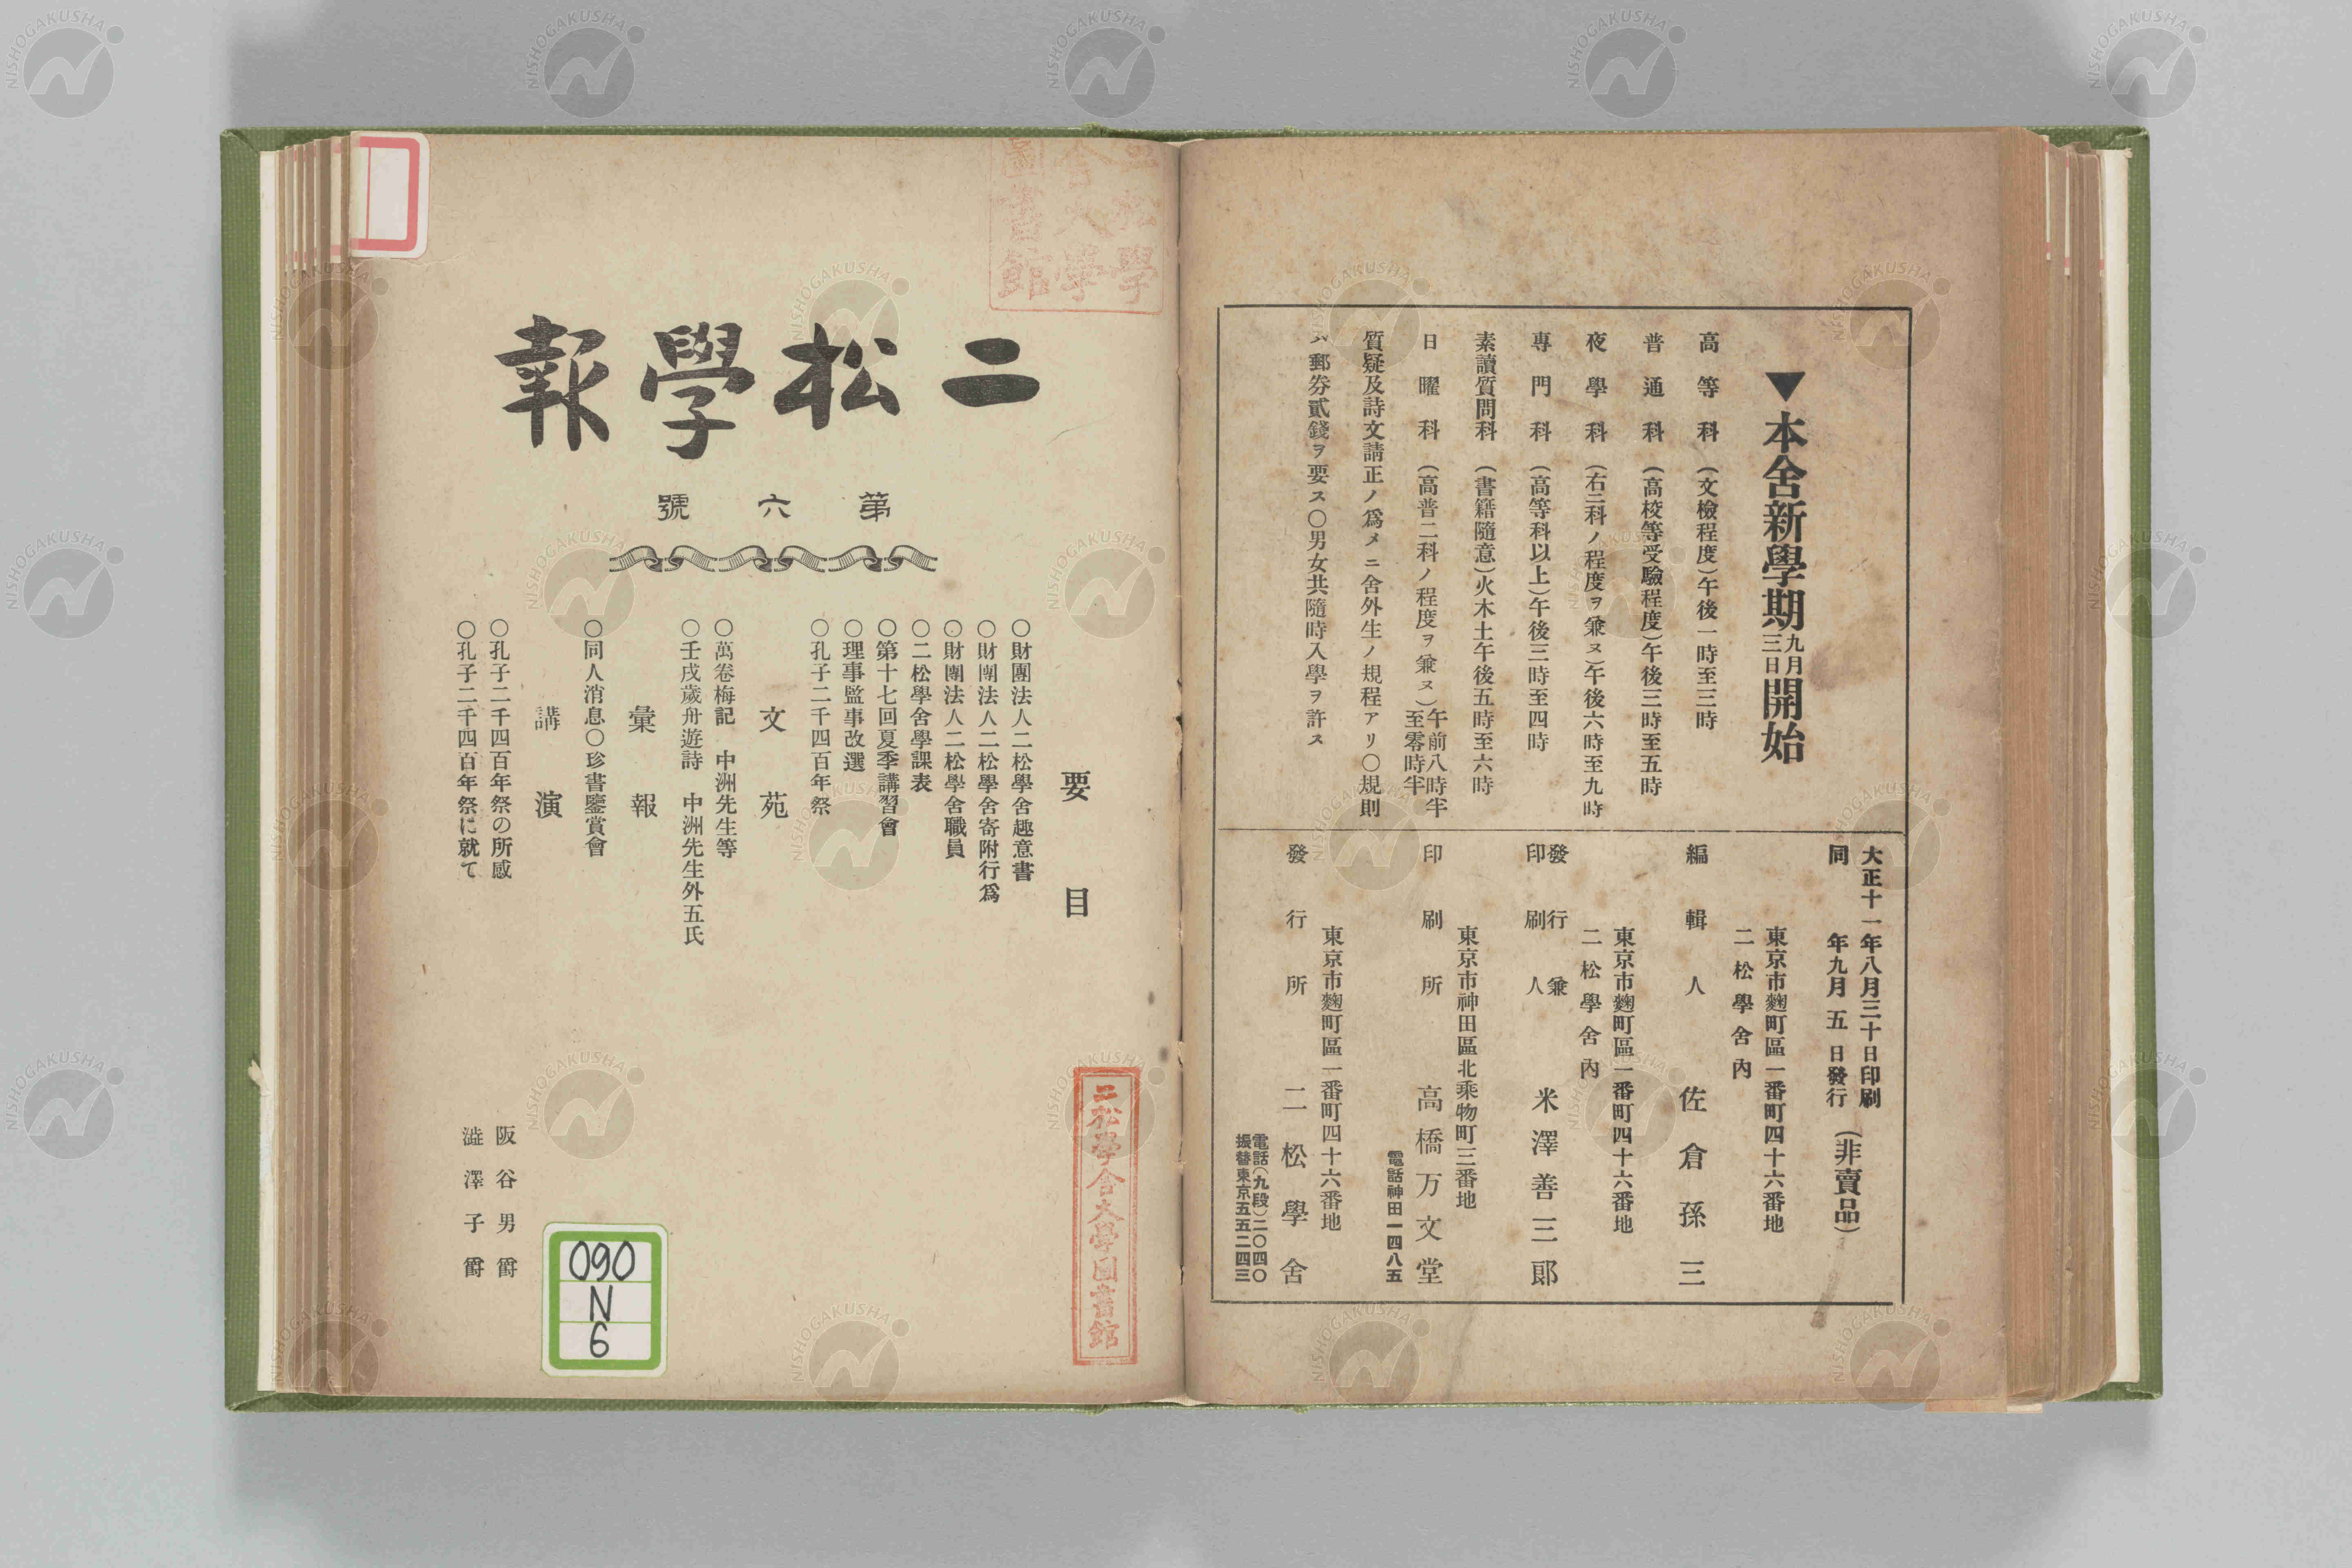 ▼本舍新學期九月三日開始
高等科（文檢程度）午後一時至三時
普通科（高校等受驗程度）午後三時至五時
夜學科（右二科ノ程度ヲ兼ヌ）午後六時至九時
專門科（高等科以上）午後三時至四時
素讀質問科（書籍隨意）火木土午後五時至六時
日曜科（高普二科ノ程度ヲ兼ヌ）午前八時半至零時半
質疑及詩文請正ノ爲メニ舍外生ノ規程アリ〇規則
ハ郵券貳錢ヲ要ス〇男女共隨時入學ヲ許ス
大正十一年八月三十日印刷
同年九月五日發行
（非賣品）
東京市麴町區一番町四十六番地
二松學舍內
編輯人 佐倉孫三
東京市麴町區一番町四十六番地
二松學舍內
發行兼印刷人 米澤善三郎
東京市神田區北乘物町三番地
印刷所 高橋万文堂
電話神田一四八五
東京市麴町區一番町四十六番地
發行所 二松學舍
電話（九段）二〇四〇
振替東京五五二四三
二松學報
第六號
要目
〇財團法人二松學舍趣意書
〇財團法人二松學舍寄附行爲
〇財團法人二松學舍職員
〇二松學舍學課表
〇第十七回夏季講習會
〇理事監事改選
〇孔子二千四百年祭
文苑
〇萬卷梅記 中洲先生等
〇壬戌歲舟遊詩 中洲先生外五氏
彙報
〇同人消息〇珍書鑒賞會
講演
〇孔子二千四百年祭の所感 阪谷男爵
〇孔子二千四百年祭に就て 澁澤子爵
二松學舍大學圖書館
二松學舍大學圖書館
090
N
6
NISHOGAKUSHA